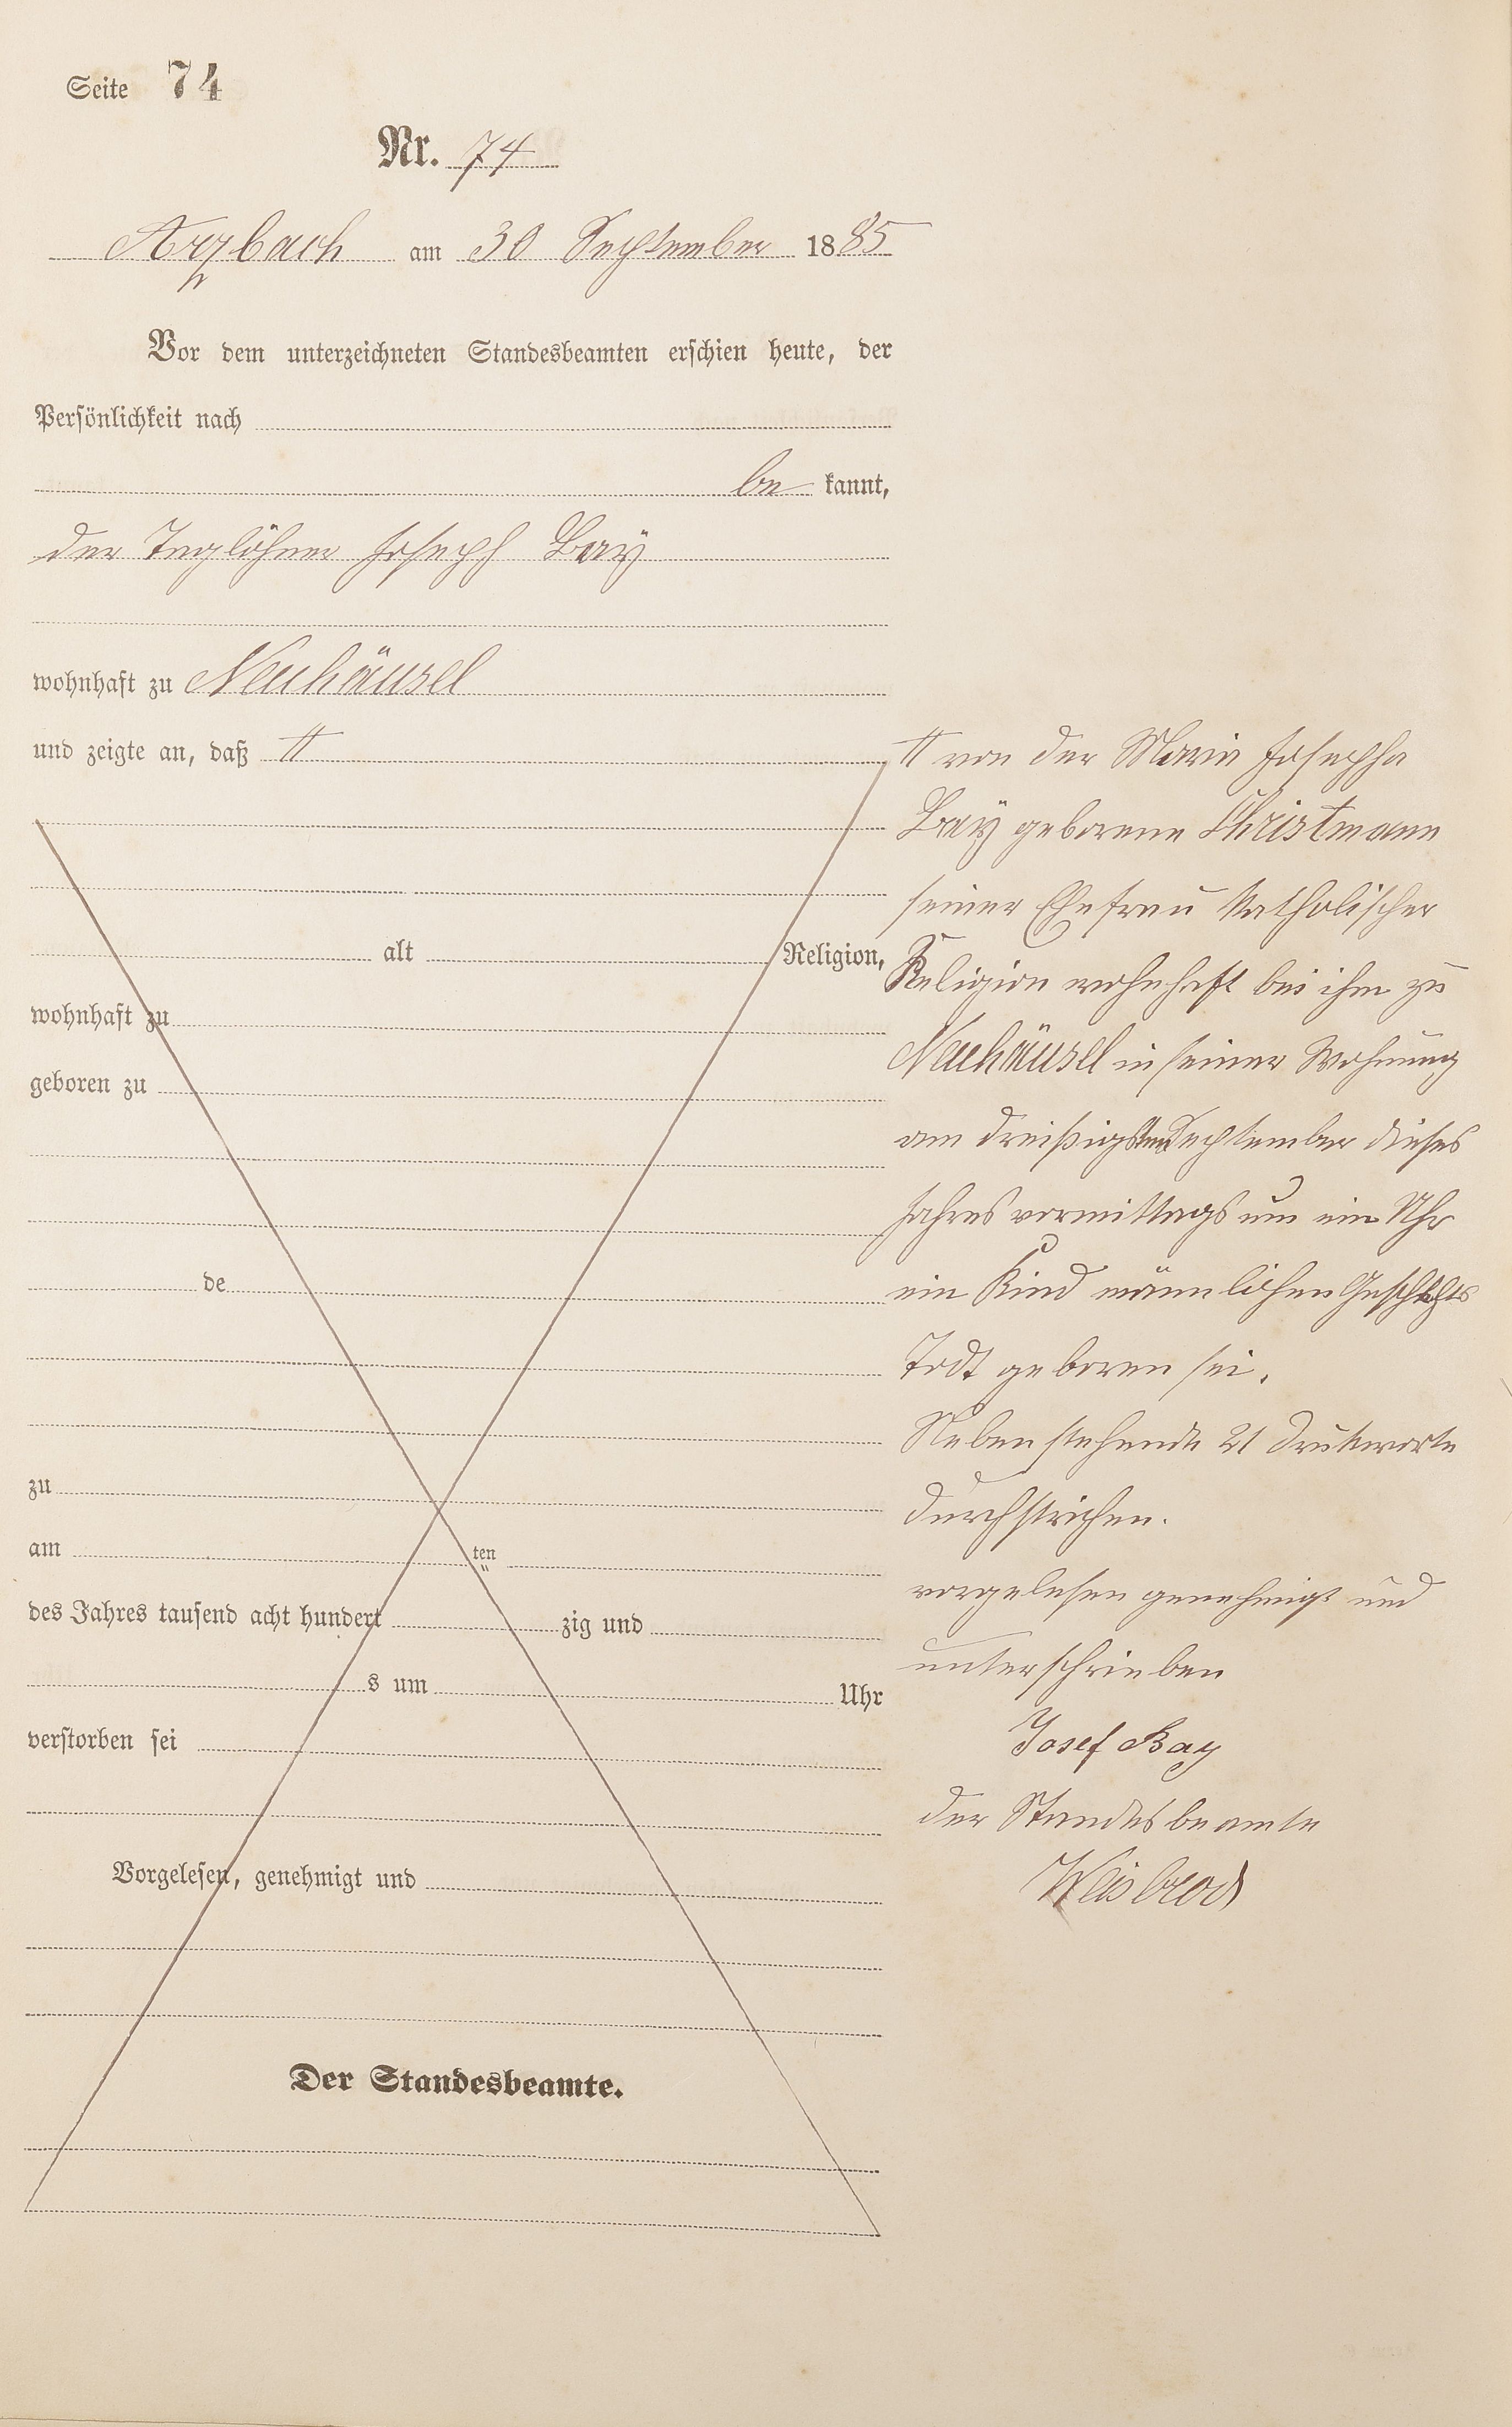 Seite 74
Nr. 74
Arzbach am 30 September 1885
Vor dem unterzeichneten Standesbeamten erschien heute, der
Persönlichkeit nach
be kannt,
der Taglöhner Joseph Bay
wohnhaft zu Neuhäusel
und zeigte an, daß
alt Religion,
wohnhaft zu
geboren zu
de
zu
am ten
des Jahres tausend acht hundert zig und
s um Uhr
verstorben sei
Vorgelesen, genehmigt und
Der Standesbeamte.
von der Maria Josepha
Bay geborene Christmann
seiner Ehefrau Katholischer
Religion wohnhaft bei ihm zu
Neuhäusel in seiner Wohnung
am dreißigsten September dieses
Jahres vormittags um ein Uhr
ein Kind männlichen Geschlechts
Todt geboren sei.
Nebenstehende 21 Druckworte
durchstrichen.
vorgelesen genehmigt und
unterschrieben
Josef Bay
der Standesbeamte
Weisbrod